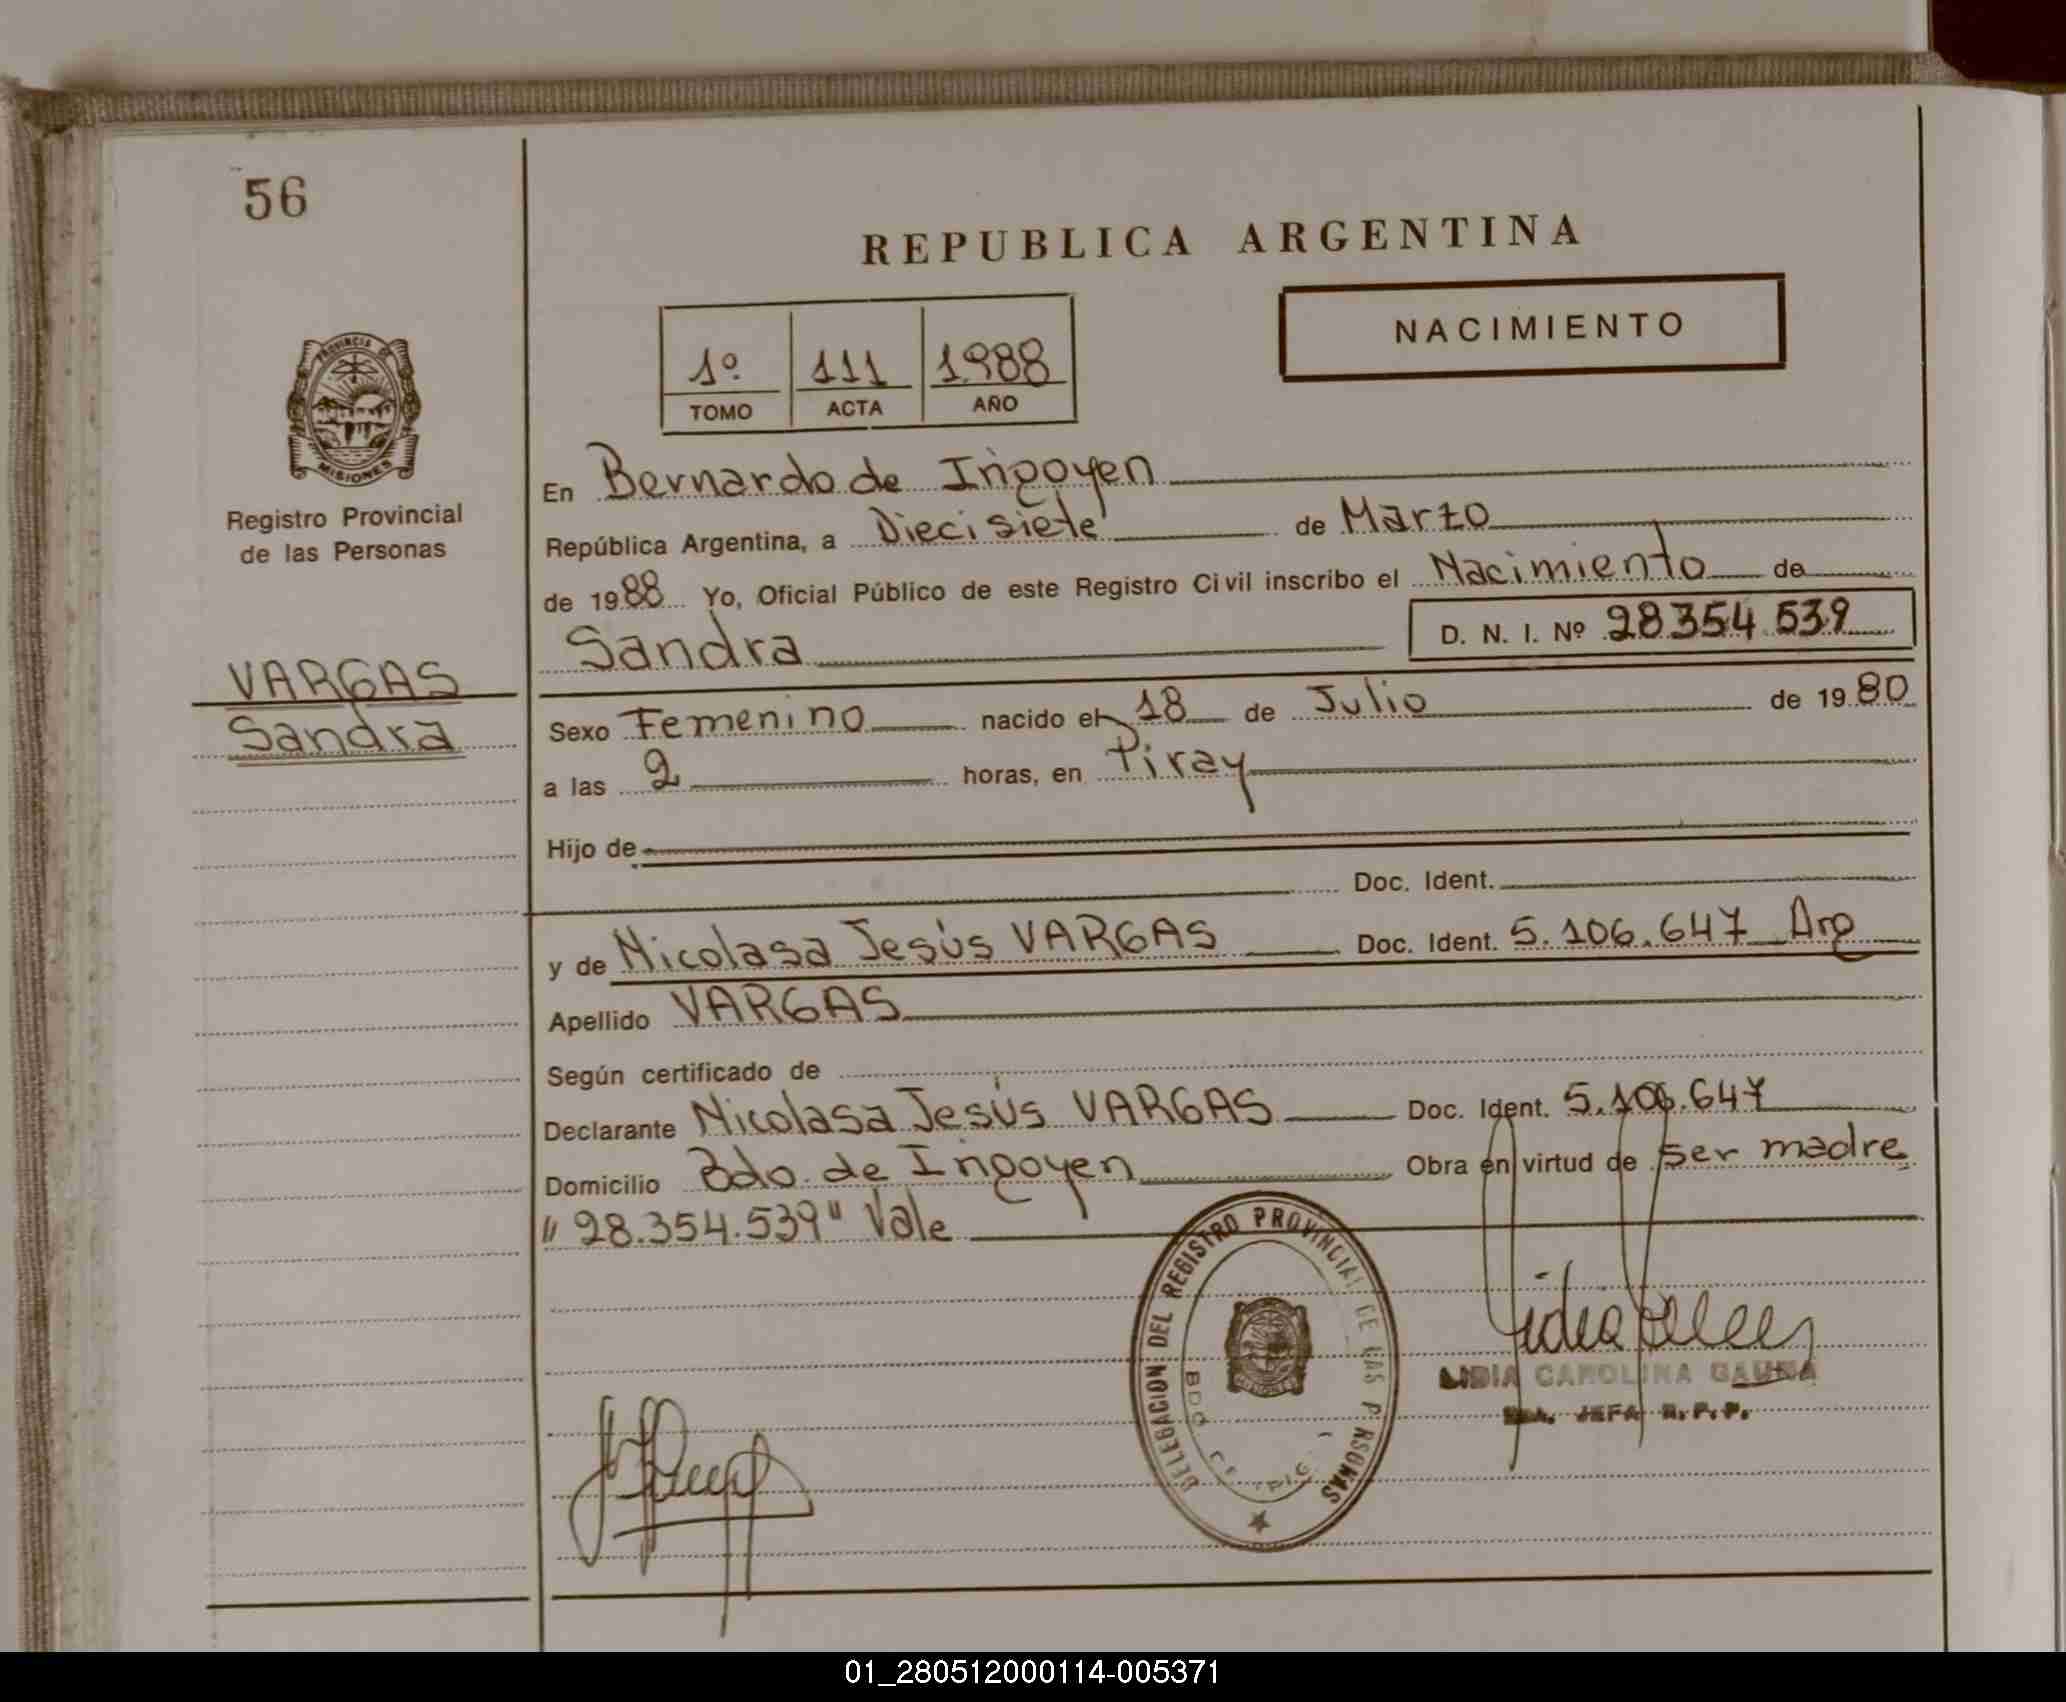 56
REPUBLICA ARGENTINA
NACIMIENTO
1º 111 1988
TOMO ACTA AÑO
PROVINCIA DE
MISIONES
Registro Provincial
de las Personas
VARGAS
Sandra
En Bernardo de Irigoyen
República Argentina, a Diecisiete de Marzo
de 1988 Yo, Oficial Público de este Registro Civil inscribo el Nacimiento de
Sandra D. N. I. Nº 28354539
Sexo Femenino nacido el 18 de Julio de 1980
a las 2 horas, en Piray
Hijo de
Doc. Ident.
y de Nicolasa Jesús VARGAS Doc. Ident. 5.106.647 Arg
Apellido VARGAS
Según certificado de
Declarante Nicolasa Jesús VARGAS Doc. Ident. 5.106.647
Domicilio Bdo. de Irigoyen Obra en virtud de ser madre
"28.354.539" Vale
DELEGACION DEL REGISTRO PROVINCIAL DE LAS PERSONAS
BDO DE IRIG
LIDIA CAROLINA GAUNA
JEFA R.P.P.
01_280512000114-005371